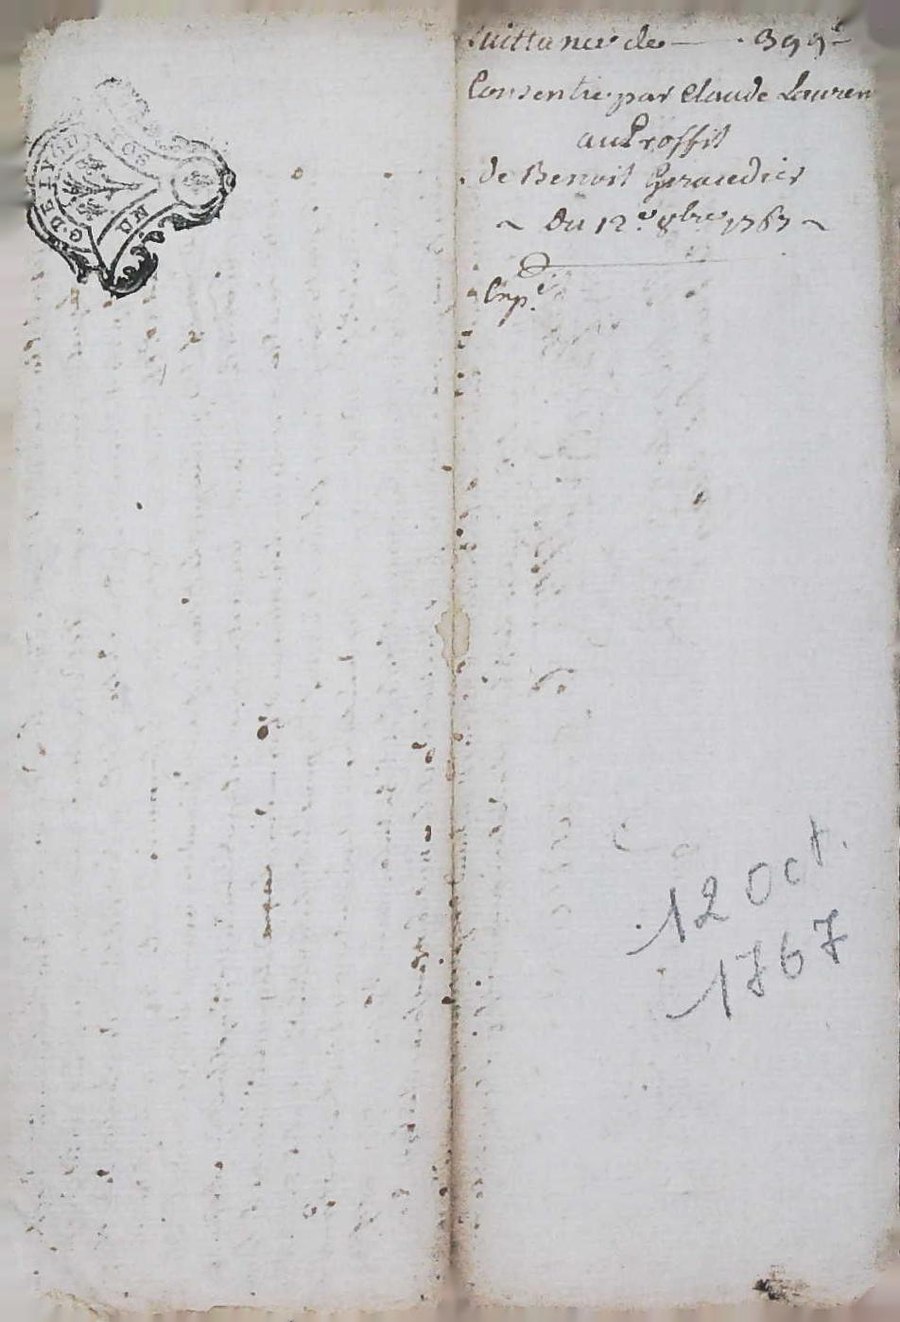 uittance de — 399ᵗ
Consentie par Claude Lauren
au Proffit
de Benoit Giraudier
~ Du 12.ᵉ 8bre 1767 ~
Exp.ᵉ
G DE LYO
UN
12 oct.
1767